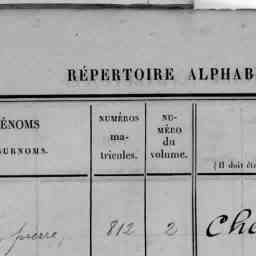 RÉPERTOIRE ALPHAB
ÉNOMS
SURNOMS.
NUMÉROS
ma-
tricules.
NU-
MÉRO
du
volume.
(Il doit êtr
pierre, 812 2 Che